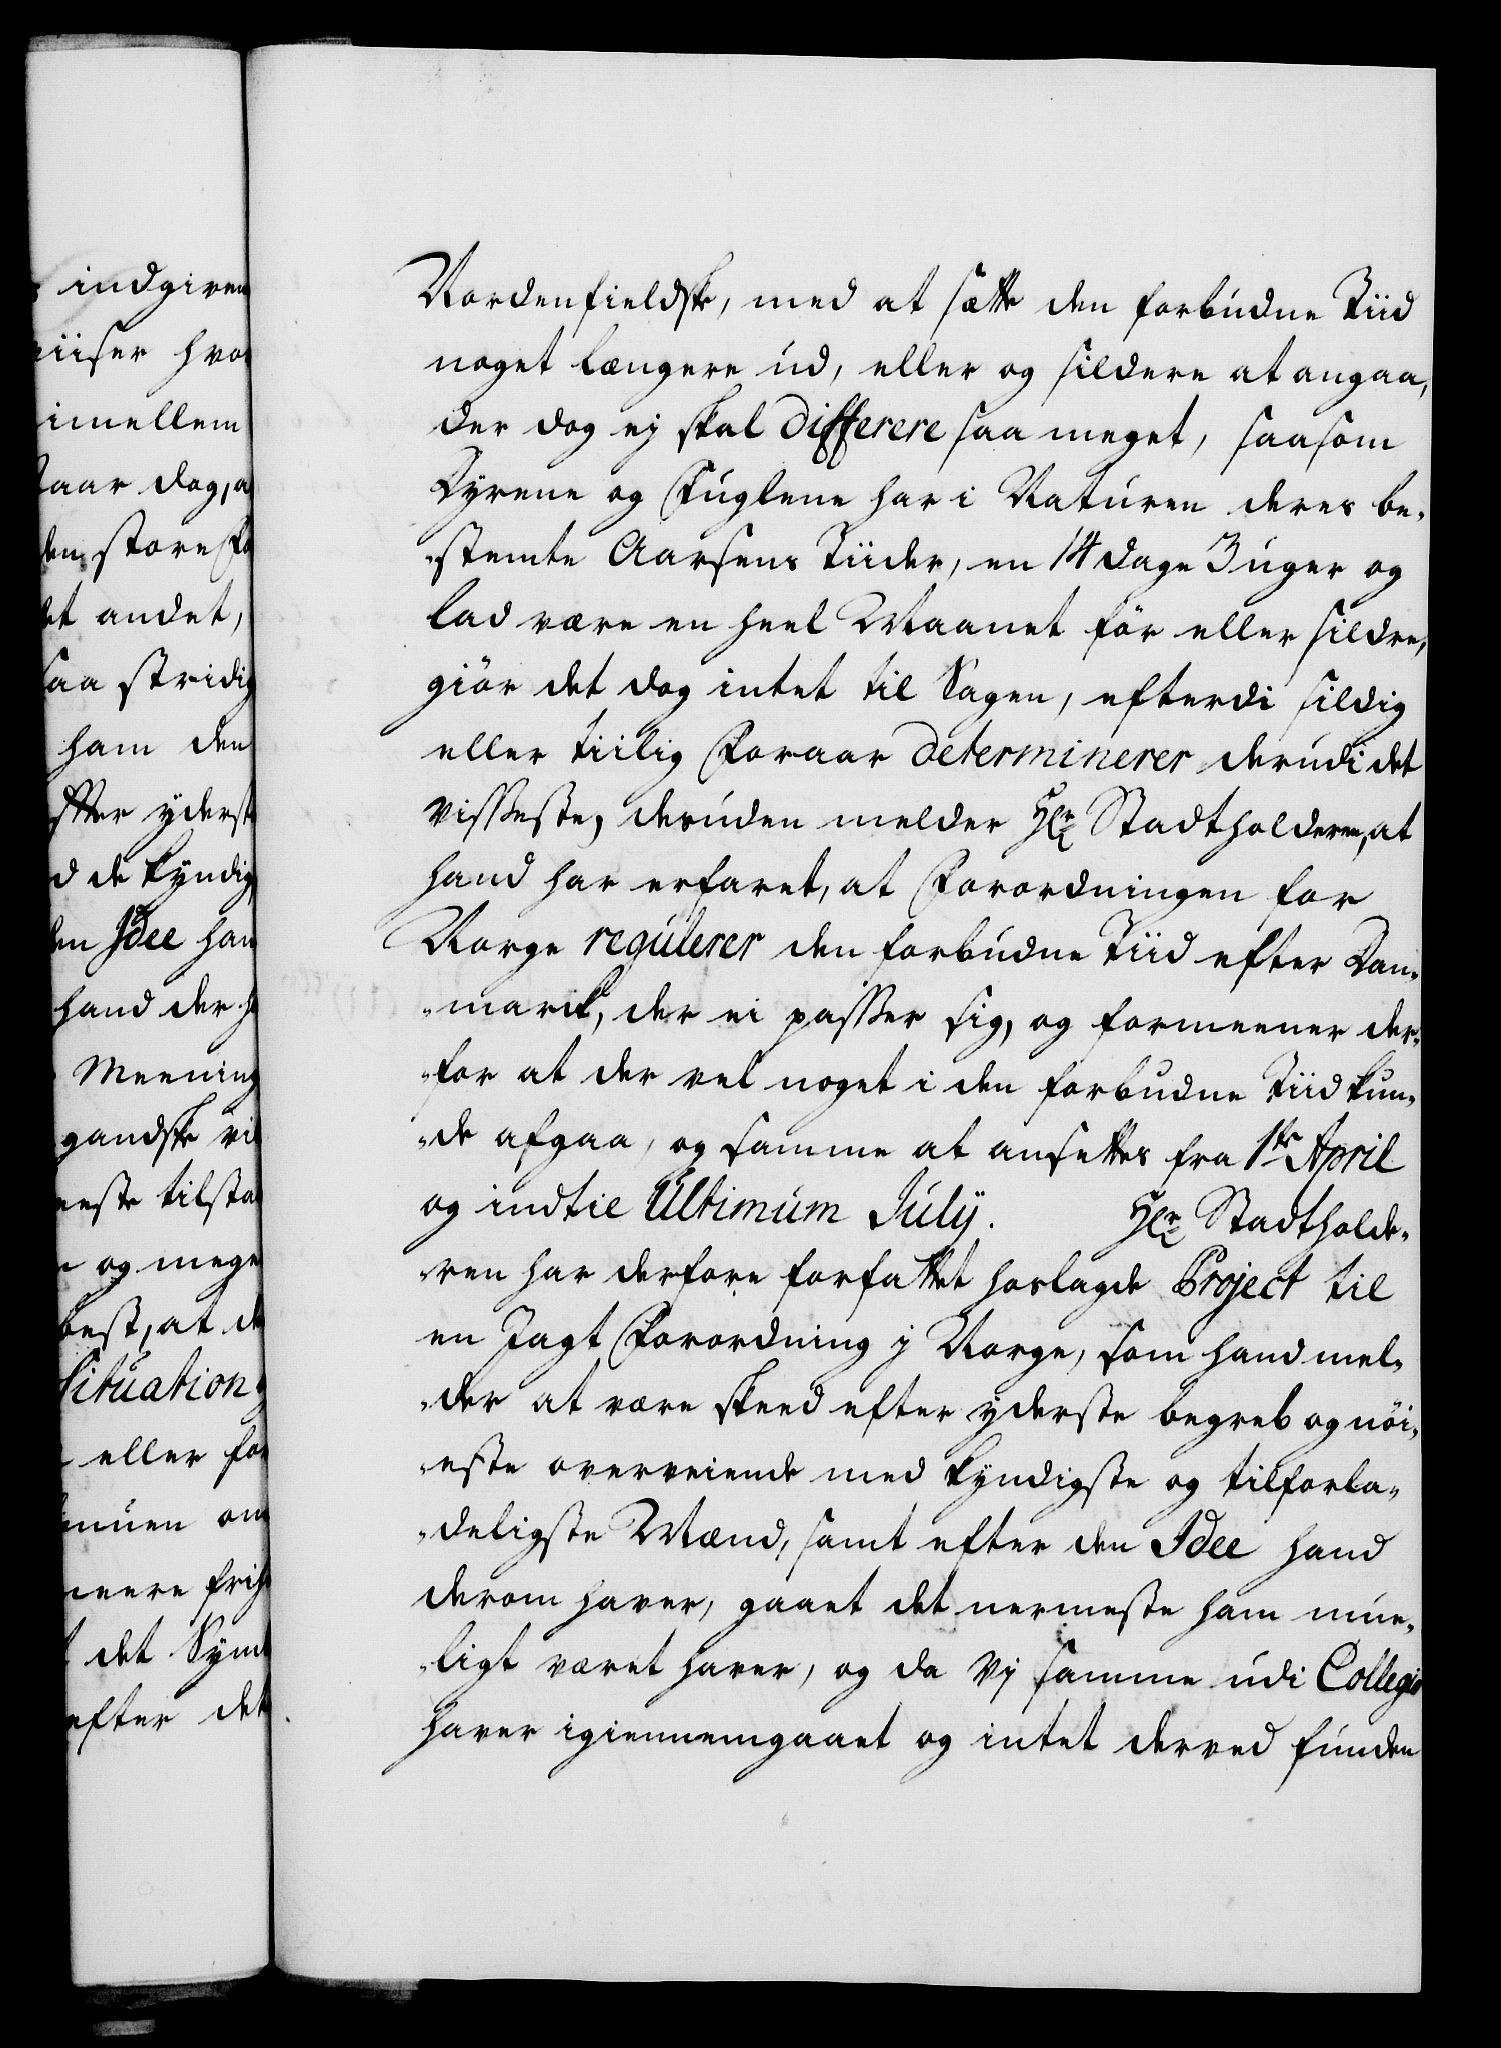 indgiven
viiser hvor
imellem
staar dog, a
den store Fo
det andet,
saa stridig
ham den
efter yderst
d de kyndig
den Idee han
hand der h
Meening
gandske vi
neste tilsta
og mege
best, at de
Situation
eller for
muen om
meere frih
det Synd
efter det
Nordenfieldske, med at sætte den forbudne Tiid
noget længere ud, eller og sildere at angaa,
der dog ej skal differere saa meget, saasom
Dyrene og Fuglene har i Naturen deres be-
-stemte Aarsens Tiider, en 14 dage 3 uger og
lad være en heel Maanet för eller sildre,
giör det dog intet til Sagen, efterdi sildig
eller tiilig Foraar determinerer derudi det
visseste, desuden melder Hlr Stadtholderen, at
hand har erfaret, at Forordningen for
Norge regulerer den forbudne Tiid efter Dan-
-marck, der ei passer sig, og formeener der-
-for at der vel noget i den forbudne Tiid kun-
-de afgaa, og samme at ansettes fra 1ste April
og indtil Ultimum July. Hlr Stadtholde-
-ren har derfore forfattet hoslagde Project til
en Jagt Forordning j Norge, som hand mel-
-der at være skeed efter yderste begreb og nöi-
-este overveiende med kyndigste og tilforla-
-deligste Mænd, samt efter den Idee hand
derom haver, gaaet det nermeste ham mue-
-ligt været haver, og da Vj samme udi Collegio
haver igiennemgaaet og intet derved funden